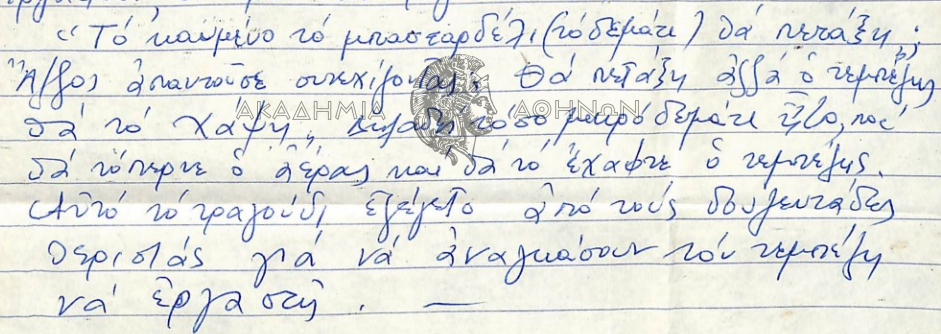 "Τό καϋμένο τό μπασταρδέλι (τό δεμάτι) θά πετάξη;
Ἄλλος ἀπαντοῦσε συνεχίζοντας. Θά πετάξη ἀλλά ὁ τεμπέλης
θά τό χάψη," Δηλαδή τόσο μικρό δεμάτι ἦτο, πού
θά τόπερνε ὁ ἀέρας καί θά τό ἔχαφτε ὁ τεμπέλης.
Αὐτό τό τραγούδι ἐλέγετο ἀπό τούς δουλευτάδες
θεριστάς γιά νά ἀναγκάσουν τόν τεμπέλη
νά ἐργαστῆ. —
ΑΚΑΔΗΜΙΑ ΑΘΗΝΩΝ